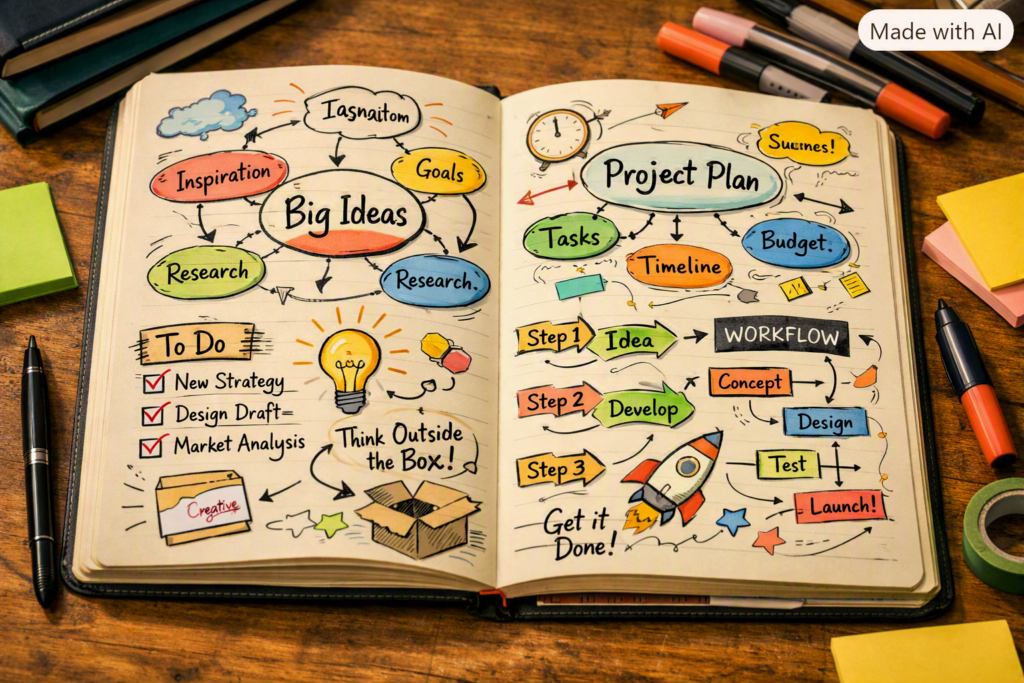 Made with AI
Iasnaitom
Inspiration
Goals
Big Ideas
Research
Research.
To Do
New Strategy
Design Draft=
Market Analysis
Think Outside
the Box!
Creative
Project Plan
Tasks
Timeline
Budget.
Step 1
Idea
WORKFLOW
Step 2
Develop
Concept
Design
Step 3
Test
Launch!
Get it
Done!